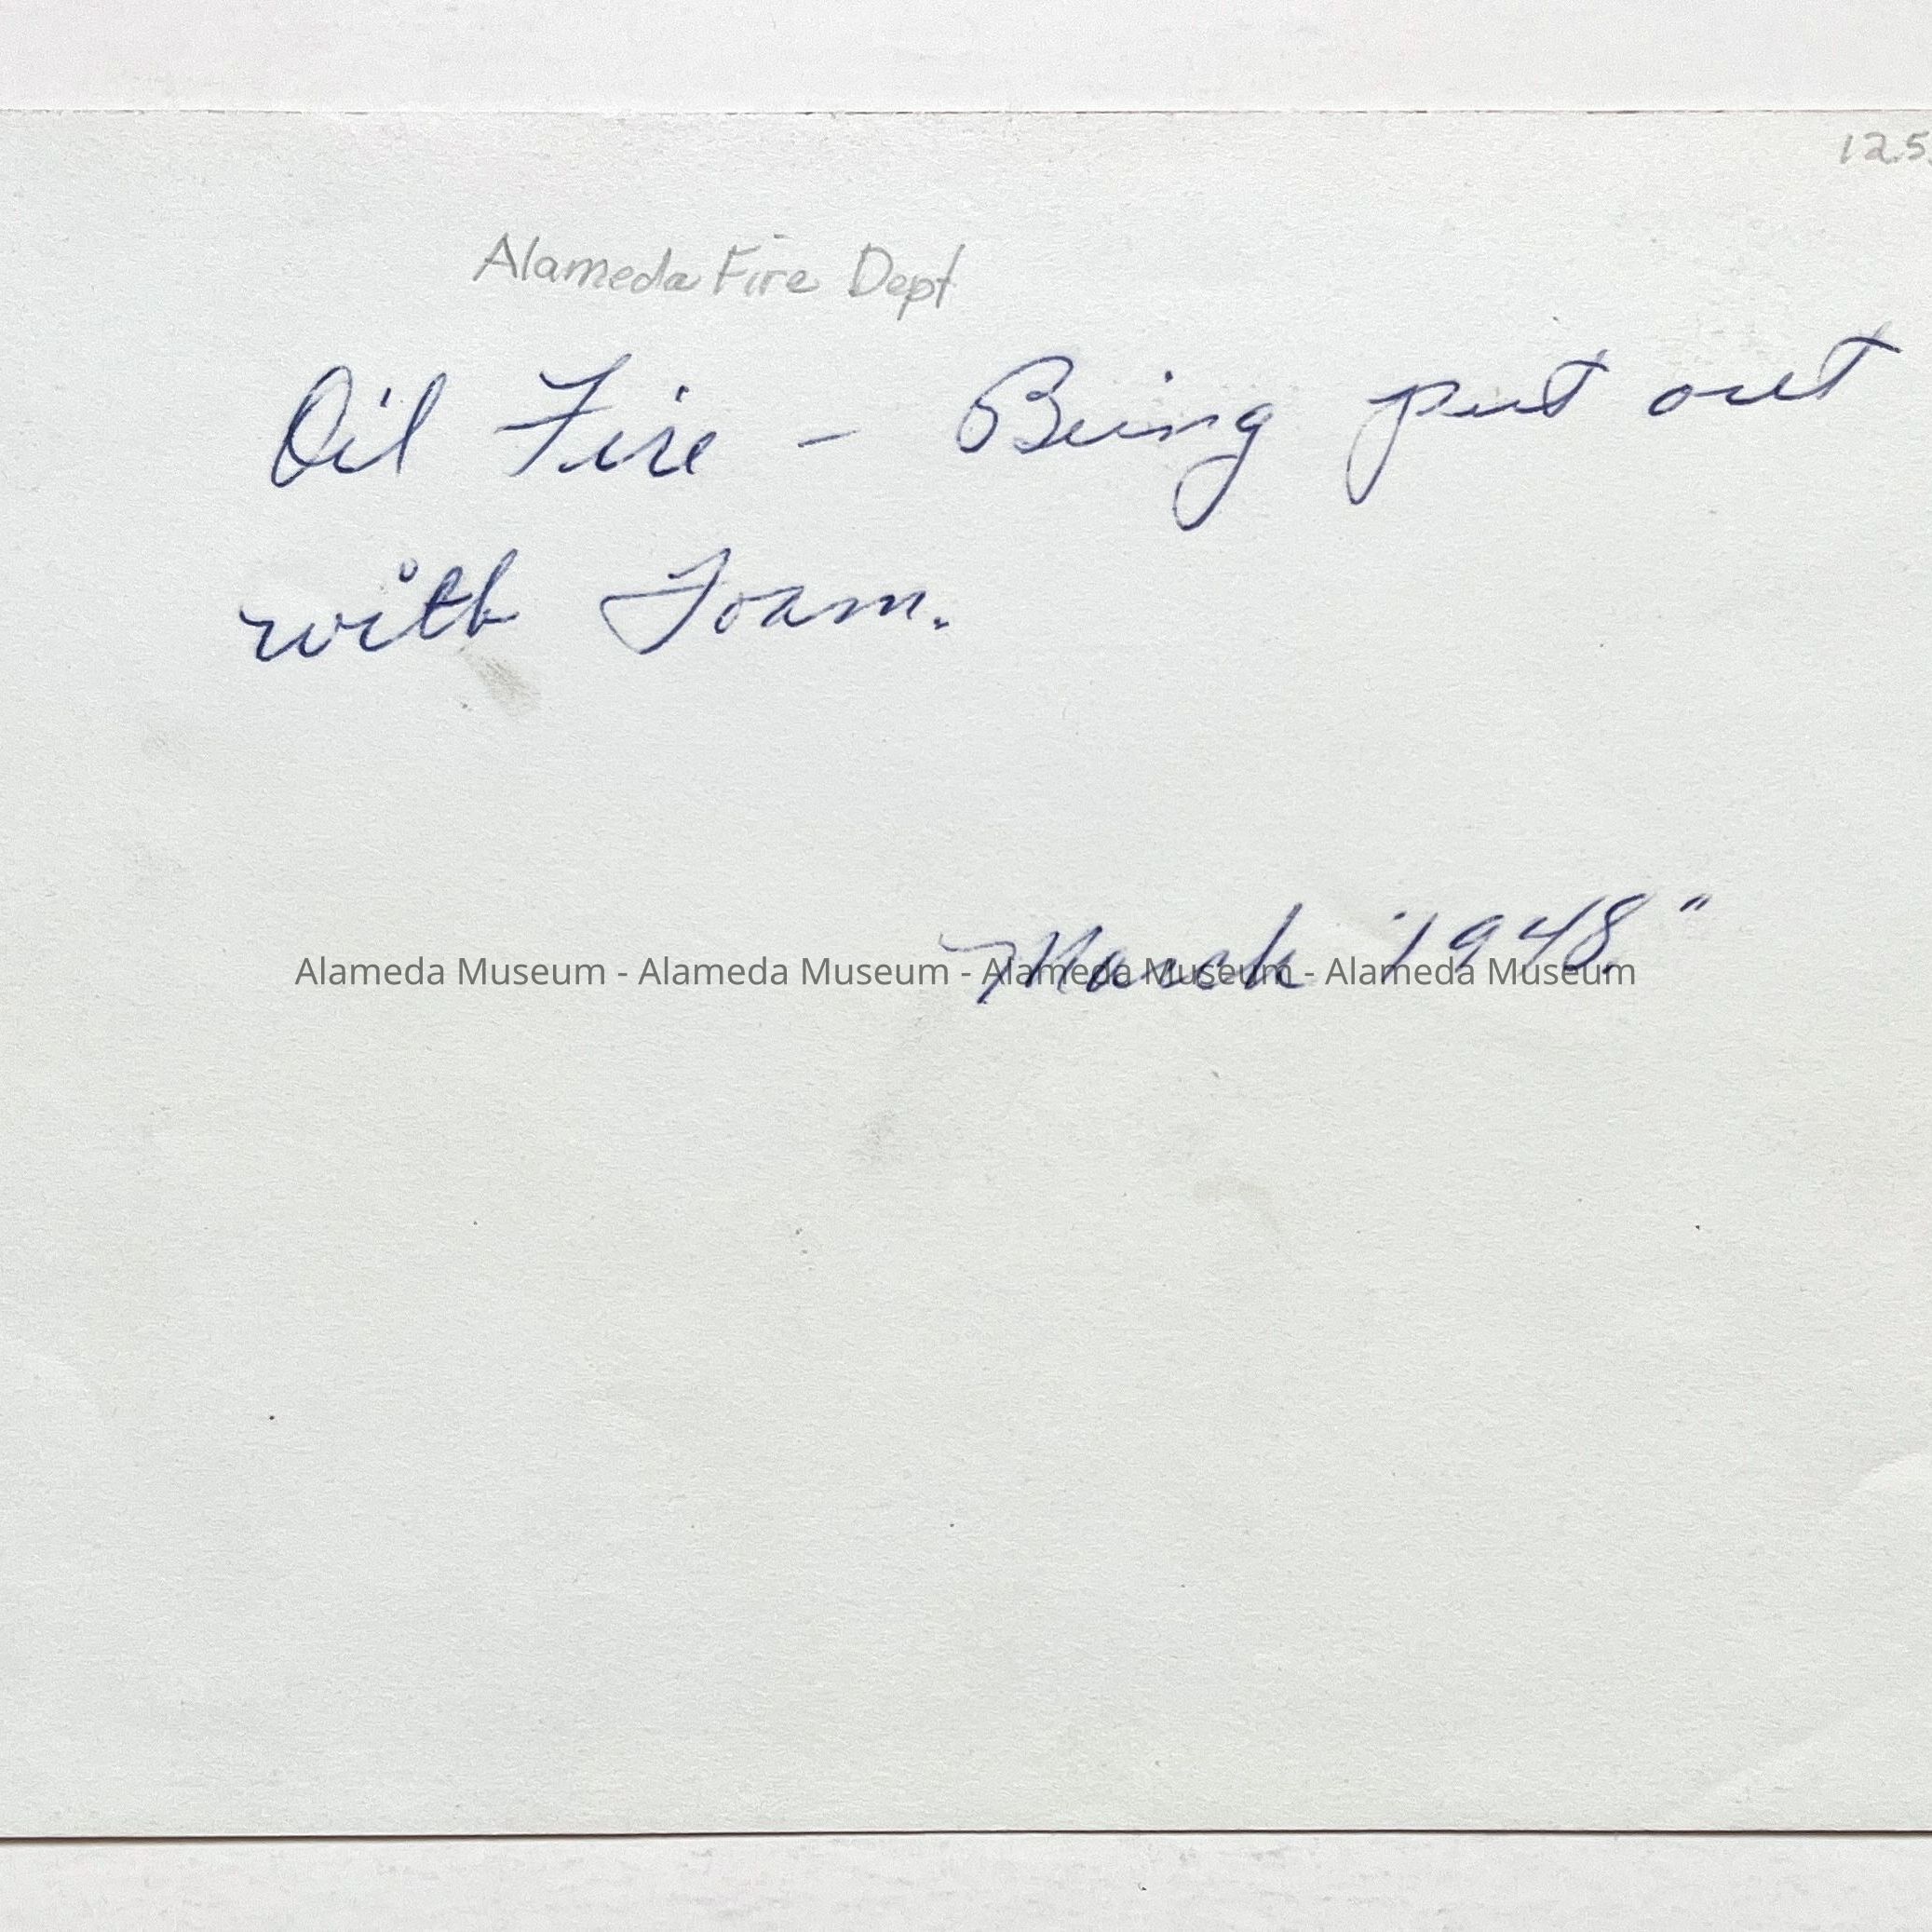 125.
Alameda Fire Dept
Oil Fire - Being put out
with Foam.
March "1948"
Alameda Museum - Alameda Museum - Alameda Museum - Alameda Museum